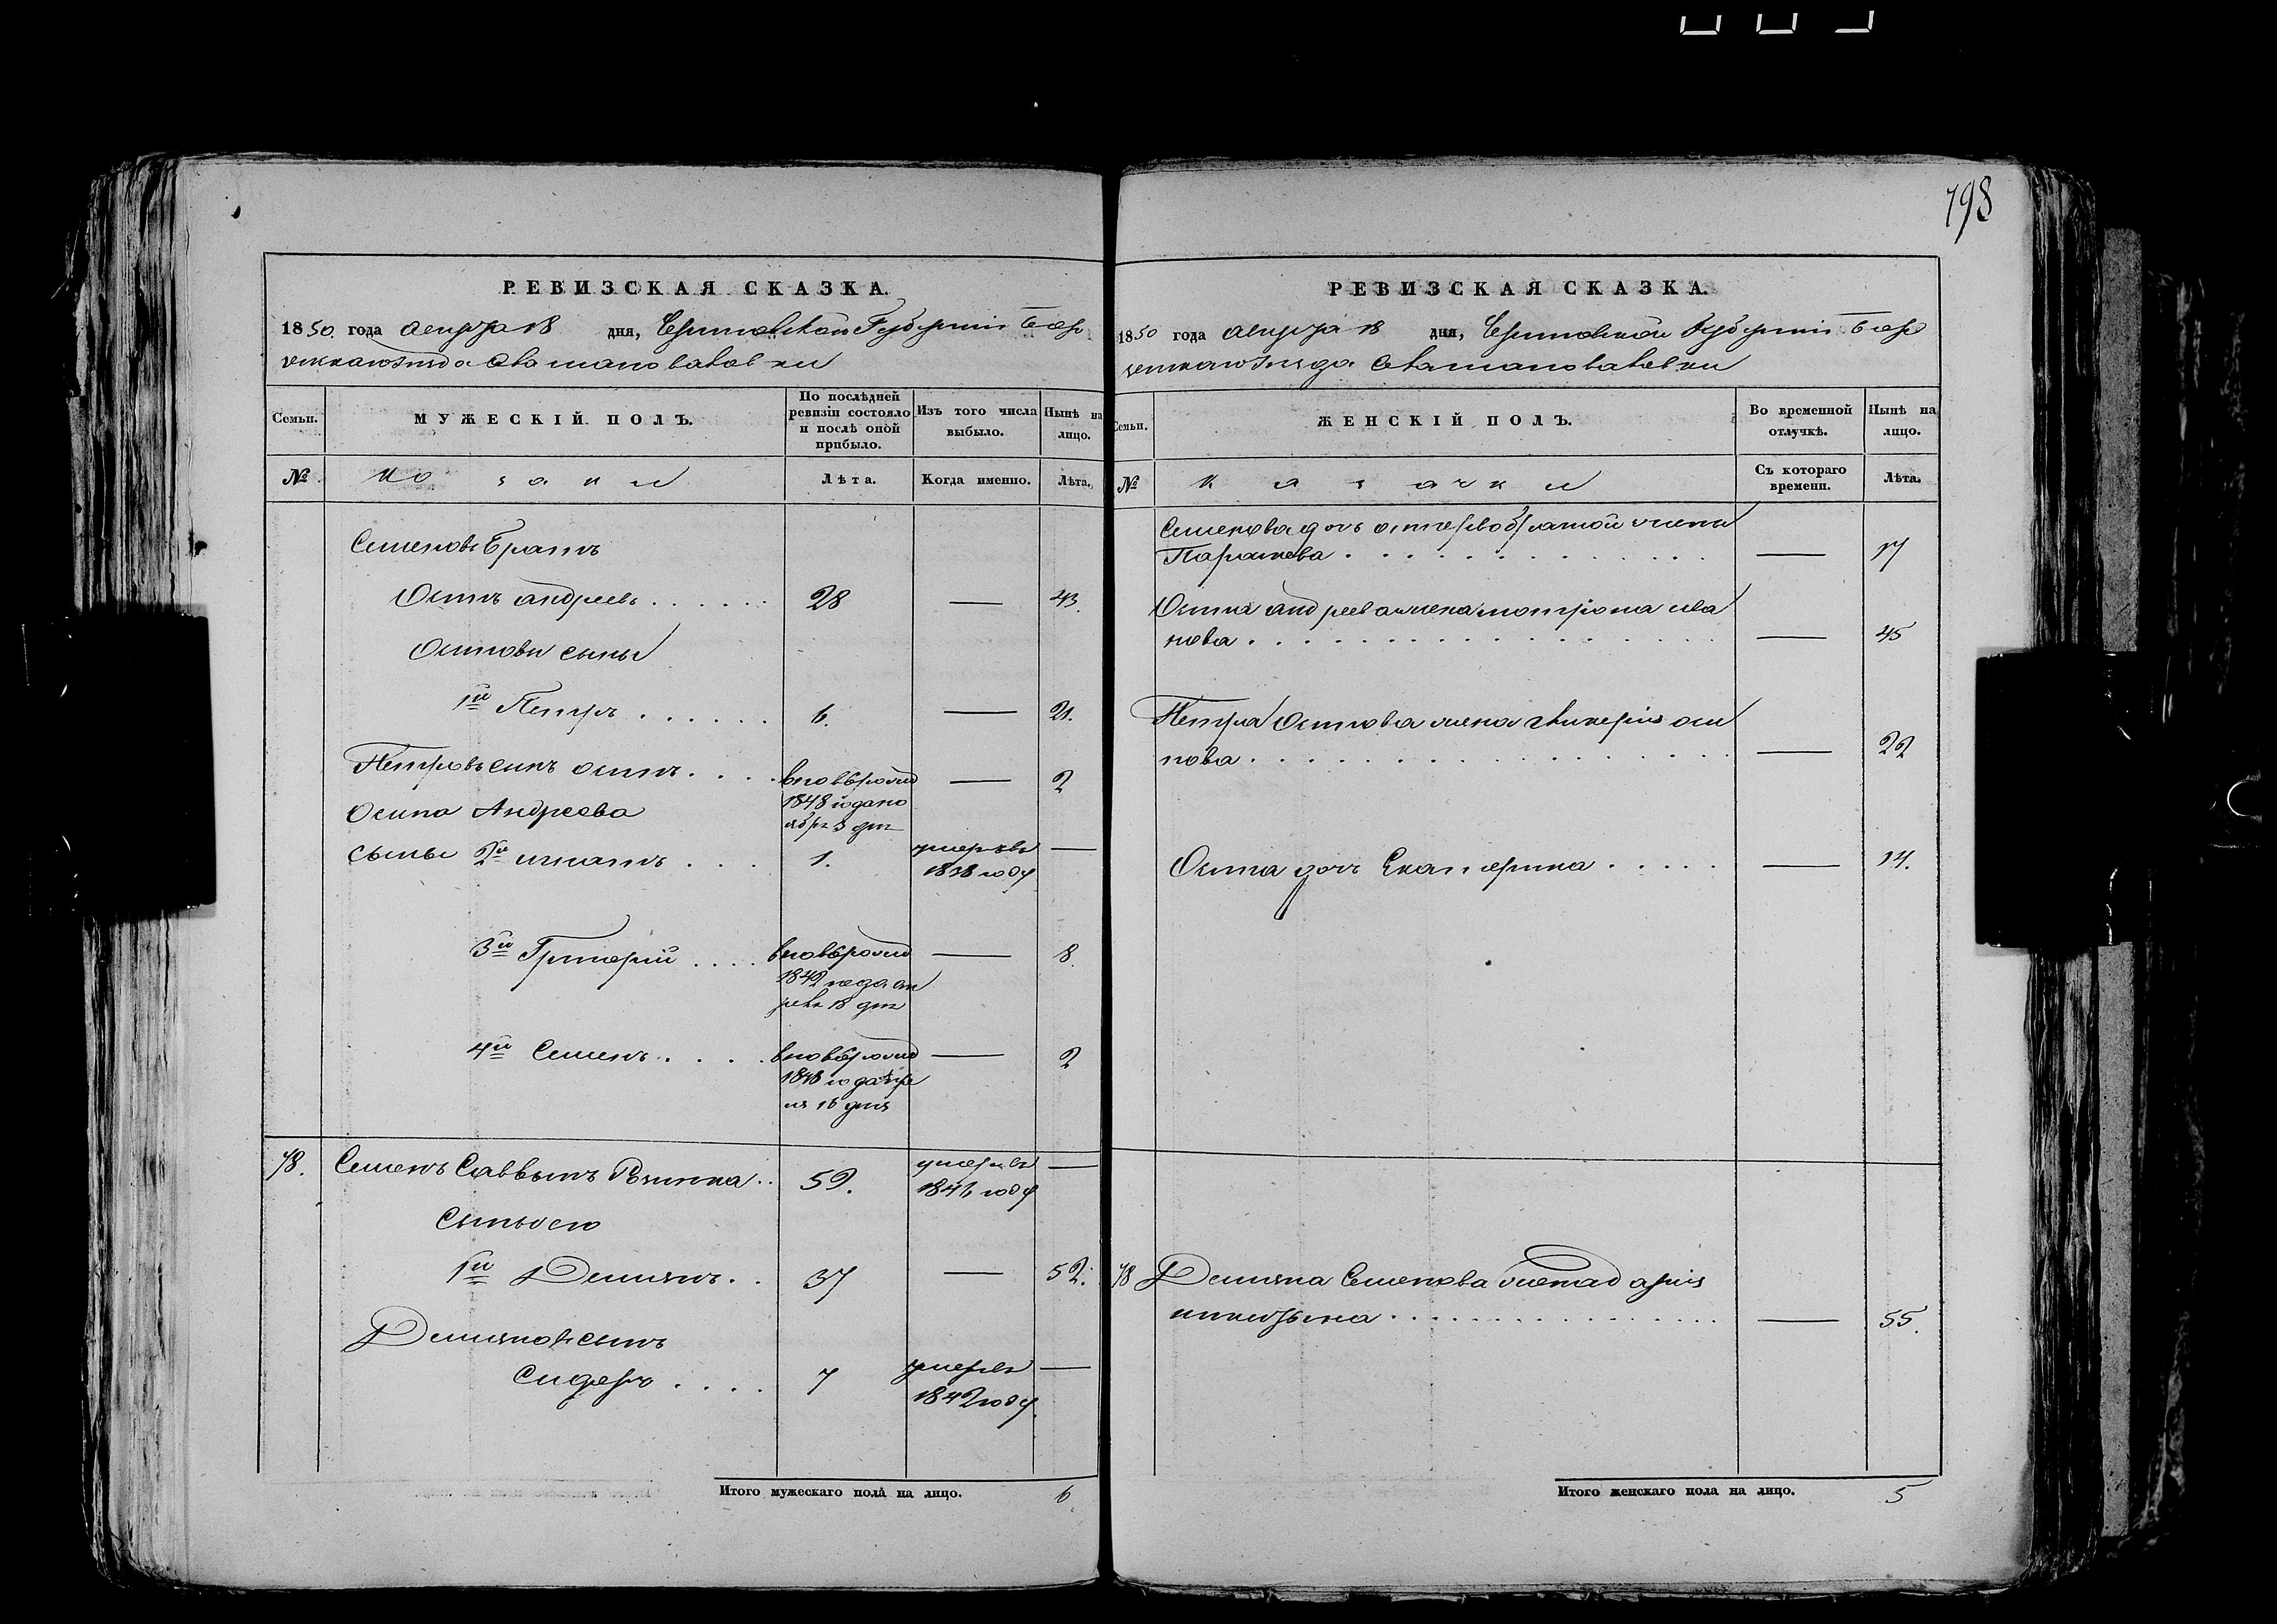 798
РЕВИЗСКАЯ СКАЗКА.
1850. года августа 18 дня, Черниговской Губернии Бор
зенскаго уезда
Семьи.
МУЖЕСКІЙ ПОЛЪ.
По послѣдней ревизіи состояло и послѣ оной прибыло.
Изъ того числа выбыло.
Нынѣ на лицо.
№
козаки
Лѣта.
Когда именно.
Лѣта.
Семеновъ братъ
Осипъ андреевъ . . . . . . 28 — 43.
Осиповы сыны
1й Петръ . . . . . . 6. — 21.
Петровъ сынъ осипъ . . . . вновърожд — 2
1848 года но
ября 3 дня
Осипа Андреева
сыны 2й игнатъ . . . 1. умеръ въ —
1838 году
3й Григорий . . . . вновърожд — 8
1842 года ап
реля 18 дня
4й Семенъ . . . . вновърожд — 2
1848 года апре
ля 16 дня
78. Семенъ Саввинъ . . 59. умеръ въ —
1841 году
Сыны его
1й Демьянъ . . 37 — 52.
Демьяновъ сынъ
Сидоръ . . . . 7 умеръ въ —
1842 году.
Итого мужескаго пола на лицо. 6
РЕВИЗСКАЯ СКАЗКА.
1850 года августа 18 дня, Черниговской Губернии Бор
зенскаго уезда
Семьи.
ЖЕНСКІЙ ПОЛЪ.
Во временной отлучкѣ.
Нынѣ на лицо.
№
казачки
Съ котораго времени.
Лѣта.
Семенова дочь отъ первобрачной жены
Параскева . . . . . . . . . . . . . — 17
Осипа андреева жена мотрона ива
нова . . . . . . . . . . . . . . . . . — 45
Петра Осипова жена оси
пова . . . . . . . . . . . . . . . . . — 22
Осипа дочь Екатерина . . . . . — 14.
78 Демьяна Семенова жена дария
. . . . . . . . . . . . . . . . — 55.
Итого женскаго пола на лицо. 5